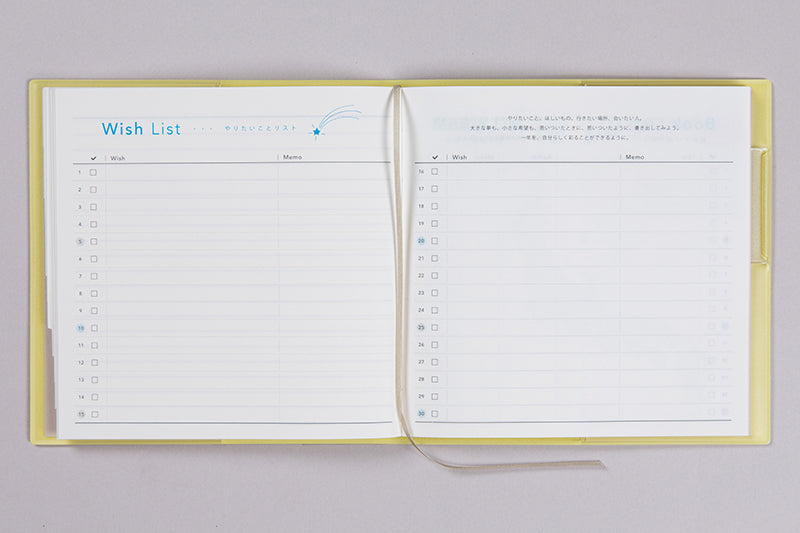 Wish List ・・・ やりたいことリスト
✓ Wish Memo
1
2
3
4
5
6
7
8
9
10
11
12
13
14
15
やりたいこと、ほしいもの、行きたい場所、会いたい人。
大きな夢も、小さな希望も、思いついたときに、思いついたように、書き出してみよう。
一年を、自分らしく彩ることができるように。
✓ Wish Memo
16
17
18
19
20
21
22
23
24
25
26
27
28
29
30